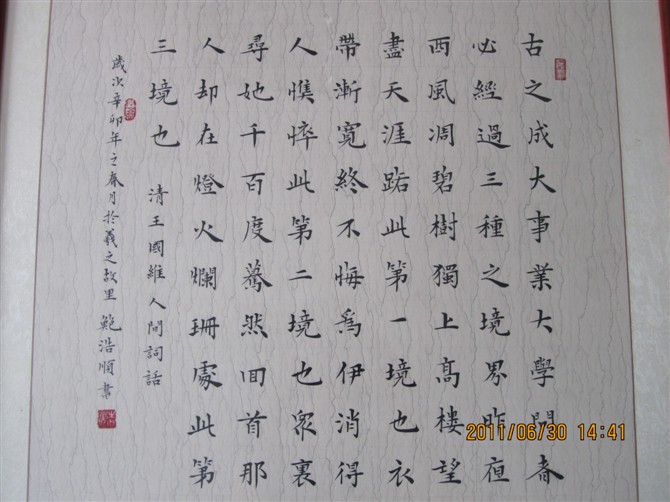 古之成大事業大學問者
必經過三種之境界昨夜
西風凋碧樹獨上高樓望
盡天涯路此第一境也衣
帶漸寬終不悔爲伊消得
人憔悴此第二境也眾裏
尋她千百度驀然回首那
人却在燈火爛珊處此第
三境也
清王國維人間詞話
歲次辛卯年之春月於羲之故里 鮑浩順書
2011/06/30 14:41